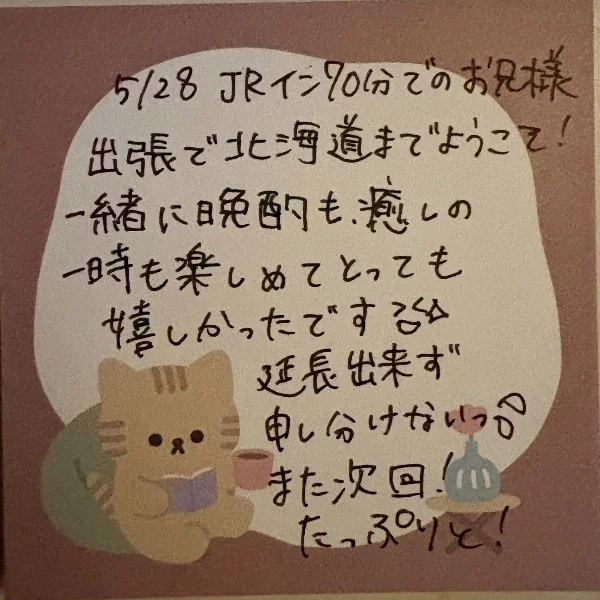 5/28 JRイン70分でのお兄様
出張で北海道までようこそ!
一緒に晩酌も、癒しの
一時も楽しめてとっても
嬉しかったです
延長出来ず
申し分けないっ
また次回!
たっぷりと!